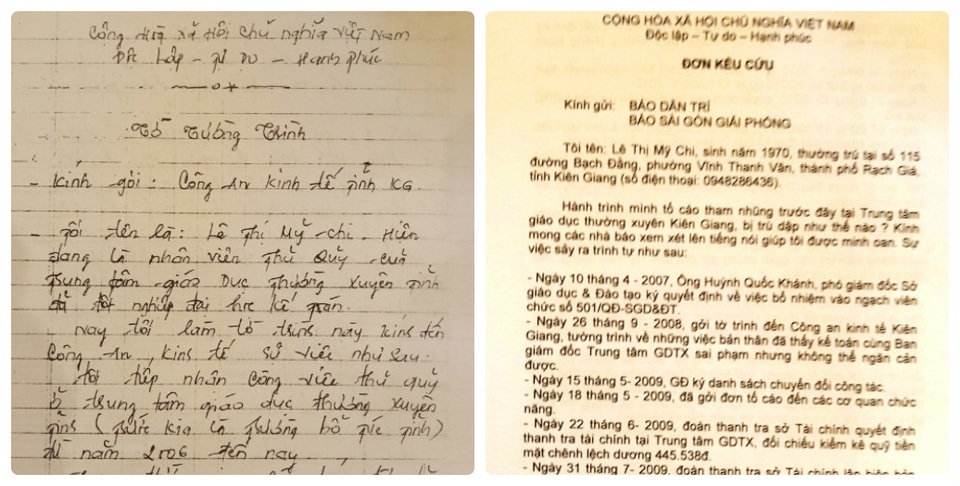 Cộng hòa xã hội chủ nghĩa việt Nam
Độc Lập - Tự Do - Hạnh phúc
Tờ Tường Trình
- Kính gởi : Công An kinh tế tỉnh KG.
- Tôi tên là : Lê Thị Mỹ - Chi . Hiện
đang là nhân viên thủ quỹ của
trung tâm giáo dục thường xuyên tỉnh
đã tốt nghiệp đại học kế toán.
Nay tôi làm tờ trình này kính đến
Công An , kinh tế sự việc như sau.
Tôi tiếp nhận công việc thủ quỹ
ở trung tâm giáo dục thường xuyên
tỉnh ( trước kia là trường bổ túc tỉnh )
từ năm 2006 đến nay .
CỘNG HÒA XÃ HỘI CHỦ NGHĨA VIỆT NAM
Độc lập – Tự do – Hạnh phúc
ĐƠN KÊU CỨU
Kính gửi: BÁO DÂN TRÍ
BÁO SÀI GÒN GIẢI PHÓNG
Tôi tên: Lê Thị Mỹ Chi, sinh năm 1970, thường trú tại số 115
đường Bạch Đằng, phường Vĩnh Thanh Vân, thành phố Rạch Giá,
tỉnh Kiên Giang (số điện thoại: 0948286436).
Hành trình mình tố cáo tham nhũng trước đây tại Trung tâm
giáo dục thường xuyên Kiên Giang, bị trù dập như thế nào ? Kính
mong các nhà báo xem xét lên tiếng nói giúp tôi được minh oan. Sự
việc sảy ra trình tự như sau:
- Ngày 10 tháng 4 - 2007, Ông Huỳnh Quốc Khánh, phó giám đốc Sở
giáo dục & Đào tạo ký quyết định về việc bổ nhiệm vào ngạch viên
chức số 501/QĐ-SGD&ĐT.
- Ngày 26 tháng 9 - 2008, gởi tờ trình đến Công an kinh tế Kiên
Giang, tường trình về những việc bản thân đã thấy kế toán cùng Ban
giám đốc Trung tâm GDTX sai phạm nhưng không thể ngăn cản
được.
- Ngày 15 tháng 5- 2009, GĐ ký danh sách chuyển đổi công tác.
- Ngày 18 tháng 5 - 2009, đã gởi đơn tố cáo đến các cơ quan chức
năng.
- Ngày 22 tháng 6- 2009, đoàn thanh tra sở Tài chính quyết định
thanh tra tài chính tại Trung tâm GDTX, đối chiếu kiểm kê quỹ tiền
mặt chênh lệch dương 445.538đ.
- Ngày 31 tháng 7- 2009, đoàn thanh tra sở Tài chính lập biên bản